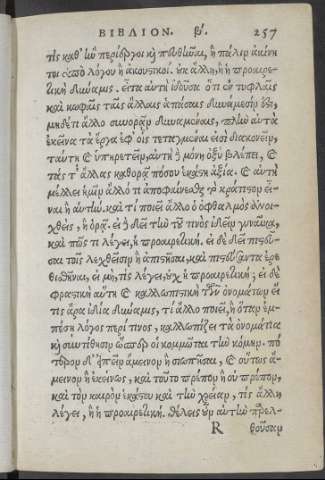 ΒΙΒΛΙΟΝ. β'. 257
τῆς καθ' ἣν περίεργοι καὶ πευθῆναι, ἢ πάλιν ἀκίνη
τοι ὑπὸ λόγου ἢ ἀκουστικοί. οὐκ ἄλλη, ἢ ἡ προαιρε-
τικὴ δύναμις. εἶτα αὐτὴ ἰδοῦσα ὅτι ἐν τυφλαῖς
καὶ κωφαῖς ταῖς ἄλλαις ἁπάσαις δυνάμεσιν ὅδε,
μηδέ τι ἄλλο συνορᾶν δυναμέναις, πλὴν αὐτὰ
ἐκεῖνα τὰ ἔργα ἐφ' οἷς τεταγμέναι εἰσὶ διακονεῖν,
ταύτη καὶ ὑπηρετεῖν, αὐτὴ δὲ μόνη ὀξὺ βλέπει, καὶ
τάς τ' ἄλλας καθορᾷ πόσου ἑκάστη ἀξία. καὶ αὐτὴ
μέλλει ἡμῖν ἄλλό τι ἀποφαίνεσθαι τὸ κράτιστον εἶ-
ναι ἢ αὑτήν. καὶ τί ποιεῖ ἄλλο ὁ ὀφθαλμὸς ἀνοι-
χθεὶς, ἢ ὁρᾷ. εἰ δὲ δεῖ τὴν τοῦ τινὸς ἰδεῖν γυναῖκα,
καὶ πῶς τι λέγει, ἡ προαιρετική. εἰ δὲ δεῖ πιστεῦ-
σαι τοῖς λεχθεῖσιν ἢ ἀπιστῆσαι, καὶ πιστεύσαντα ἐρε
θισθῆναι, εἰ μή, τίς λέγει, οὐχ ἡ προαιρετική; εἰ δὲ
φραστικὴ αὕτη καὶ καλλωπιστικὴ τῶν ὀνομάτων εἴ
τις ἄρα ἰδία δύναμις, τί ἄλλο ποιεῖ, ἢ ὅταν ἐμ-
πέσῃ λόγος περί τινος, καλλωπίζει τὰ ὀνομάτια
καὶ συντίθησιν ὥσπερ οἱ κομμωταὶ τὴν κόμην. πό
τερον δ' εἰπεῖν ἄμεινον ἢ σιωπῆσαι, καὶ οὕτως ἄ-
μεινον ἢ ἐκείνως, καὶ τοῦτο πρέπον ἢ οὐ πρέπον,
καὶ τὸν καιρὸν ἑκάστου καὶ τὴν χρείαν, τίς ἄλλη
λέγει, ἢ ἡ προαιρετική. θέλεις οὖν αὐτὴν παρελ-
R θοῦσαν